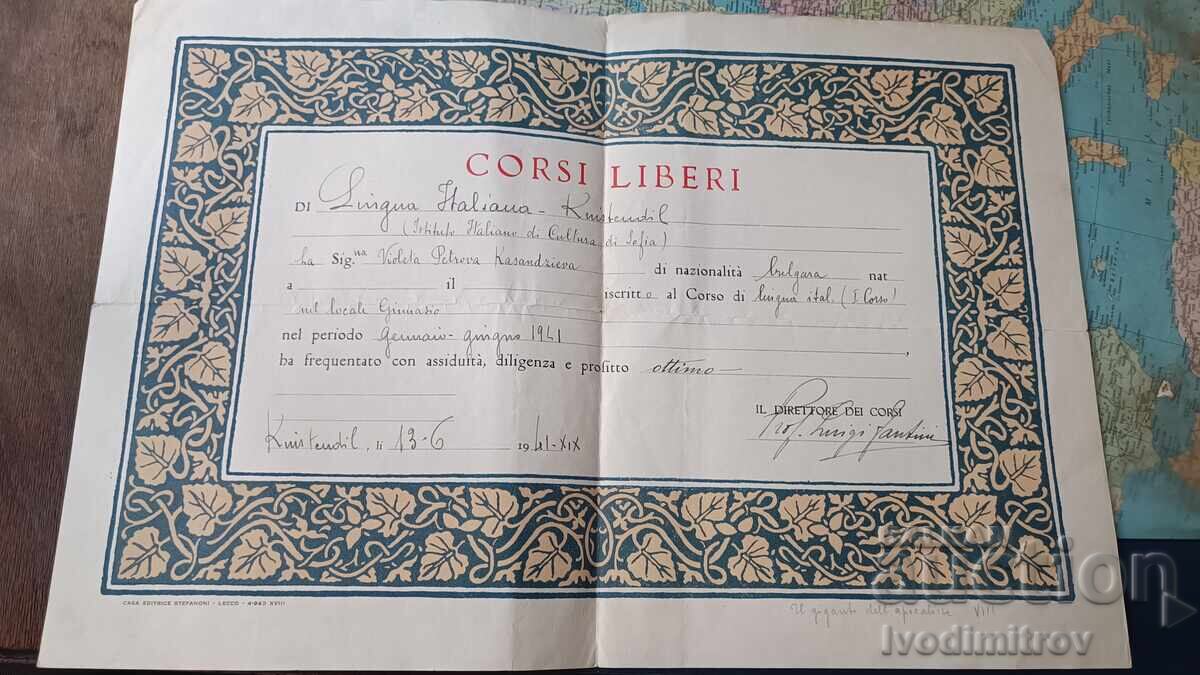 CORSI LIBERI
DI Lingua Italiana - Kustendil
(Istituto Italiano di Cultura di Sofia)
ha Sig.na Violeta Petrova Kasandzieva di nazionalità bulgara nat
a il iscritto al Corso di lingua ital. (I Corso)
nel locale Ginnasio
nel periodo Gennaio - giugno 1941,
ha frequentato con assiduità, diligenza e profitto ottimo
IL DIRETTORE DEI CORSI
Prof. Luigi Fantini
Kustendil, li 13-6 1941-XIX
CASA EDITRICE STEFANONI - LECCO - 4-940 XVIII
Il gigante dell'apocalisse VIII
auction
Ivodimitrov